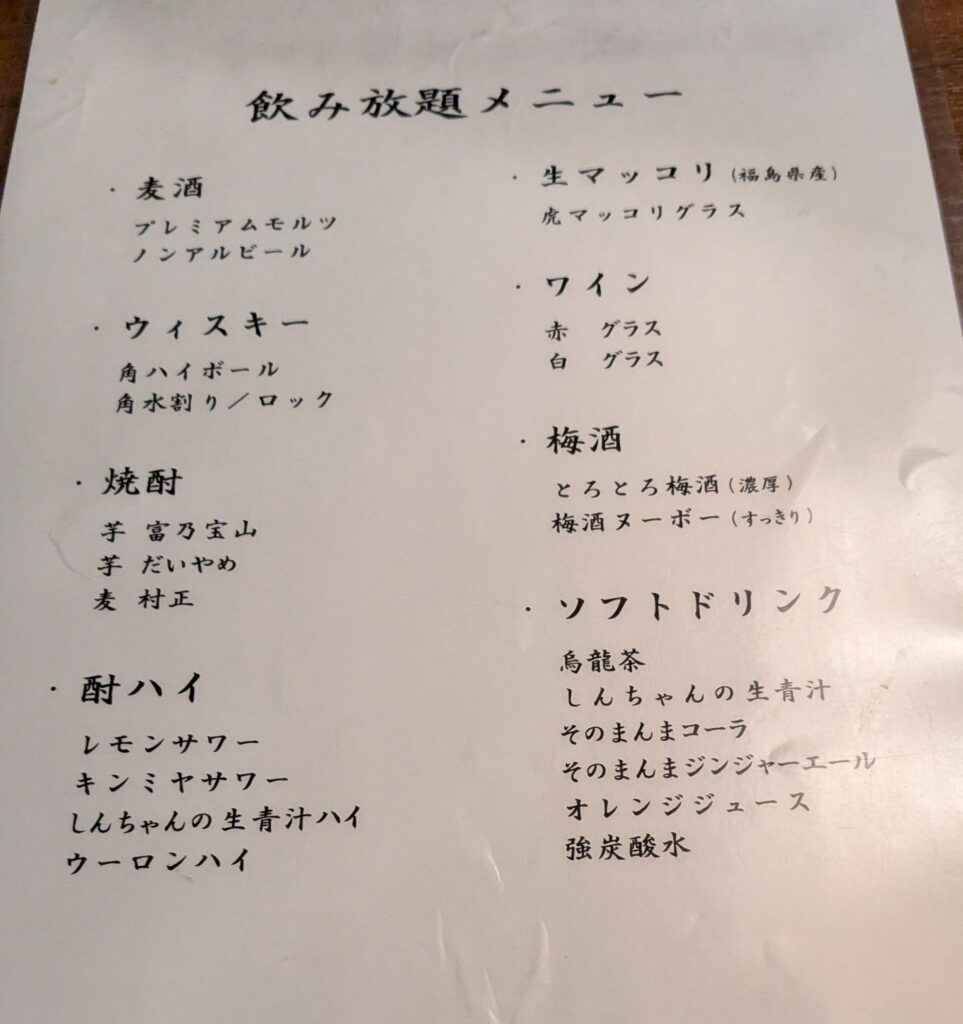 飲み放題メニュー
・麦酒
プレミアムモルツ
ノンアルビール
・ウィスキー
角ハイボール
角水割り／ロック
・焼酎
芋 富乃宝山
芋 だいやめ
麦 村正
・酎ハイ
レモンサワー
キンミヤサワー
しんちゃんの生青汁ハイ
ウーロンハイ
・生マッコリ（福島県産）
虎マッコリグラス
・ワイン
赤 グラス
白 グラス
・梅酒
とろとろ梅酒（濃厚）
梅酒ヌーボー（すっきり）
・ソフトドリンク
烏龍茶
しんちゃんの生青汁
そのまんまコーラ
そのまんまジンジャーエール
オレンジジュース
強炭酸水